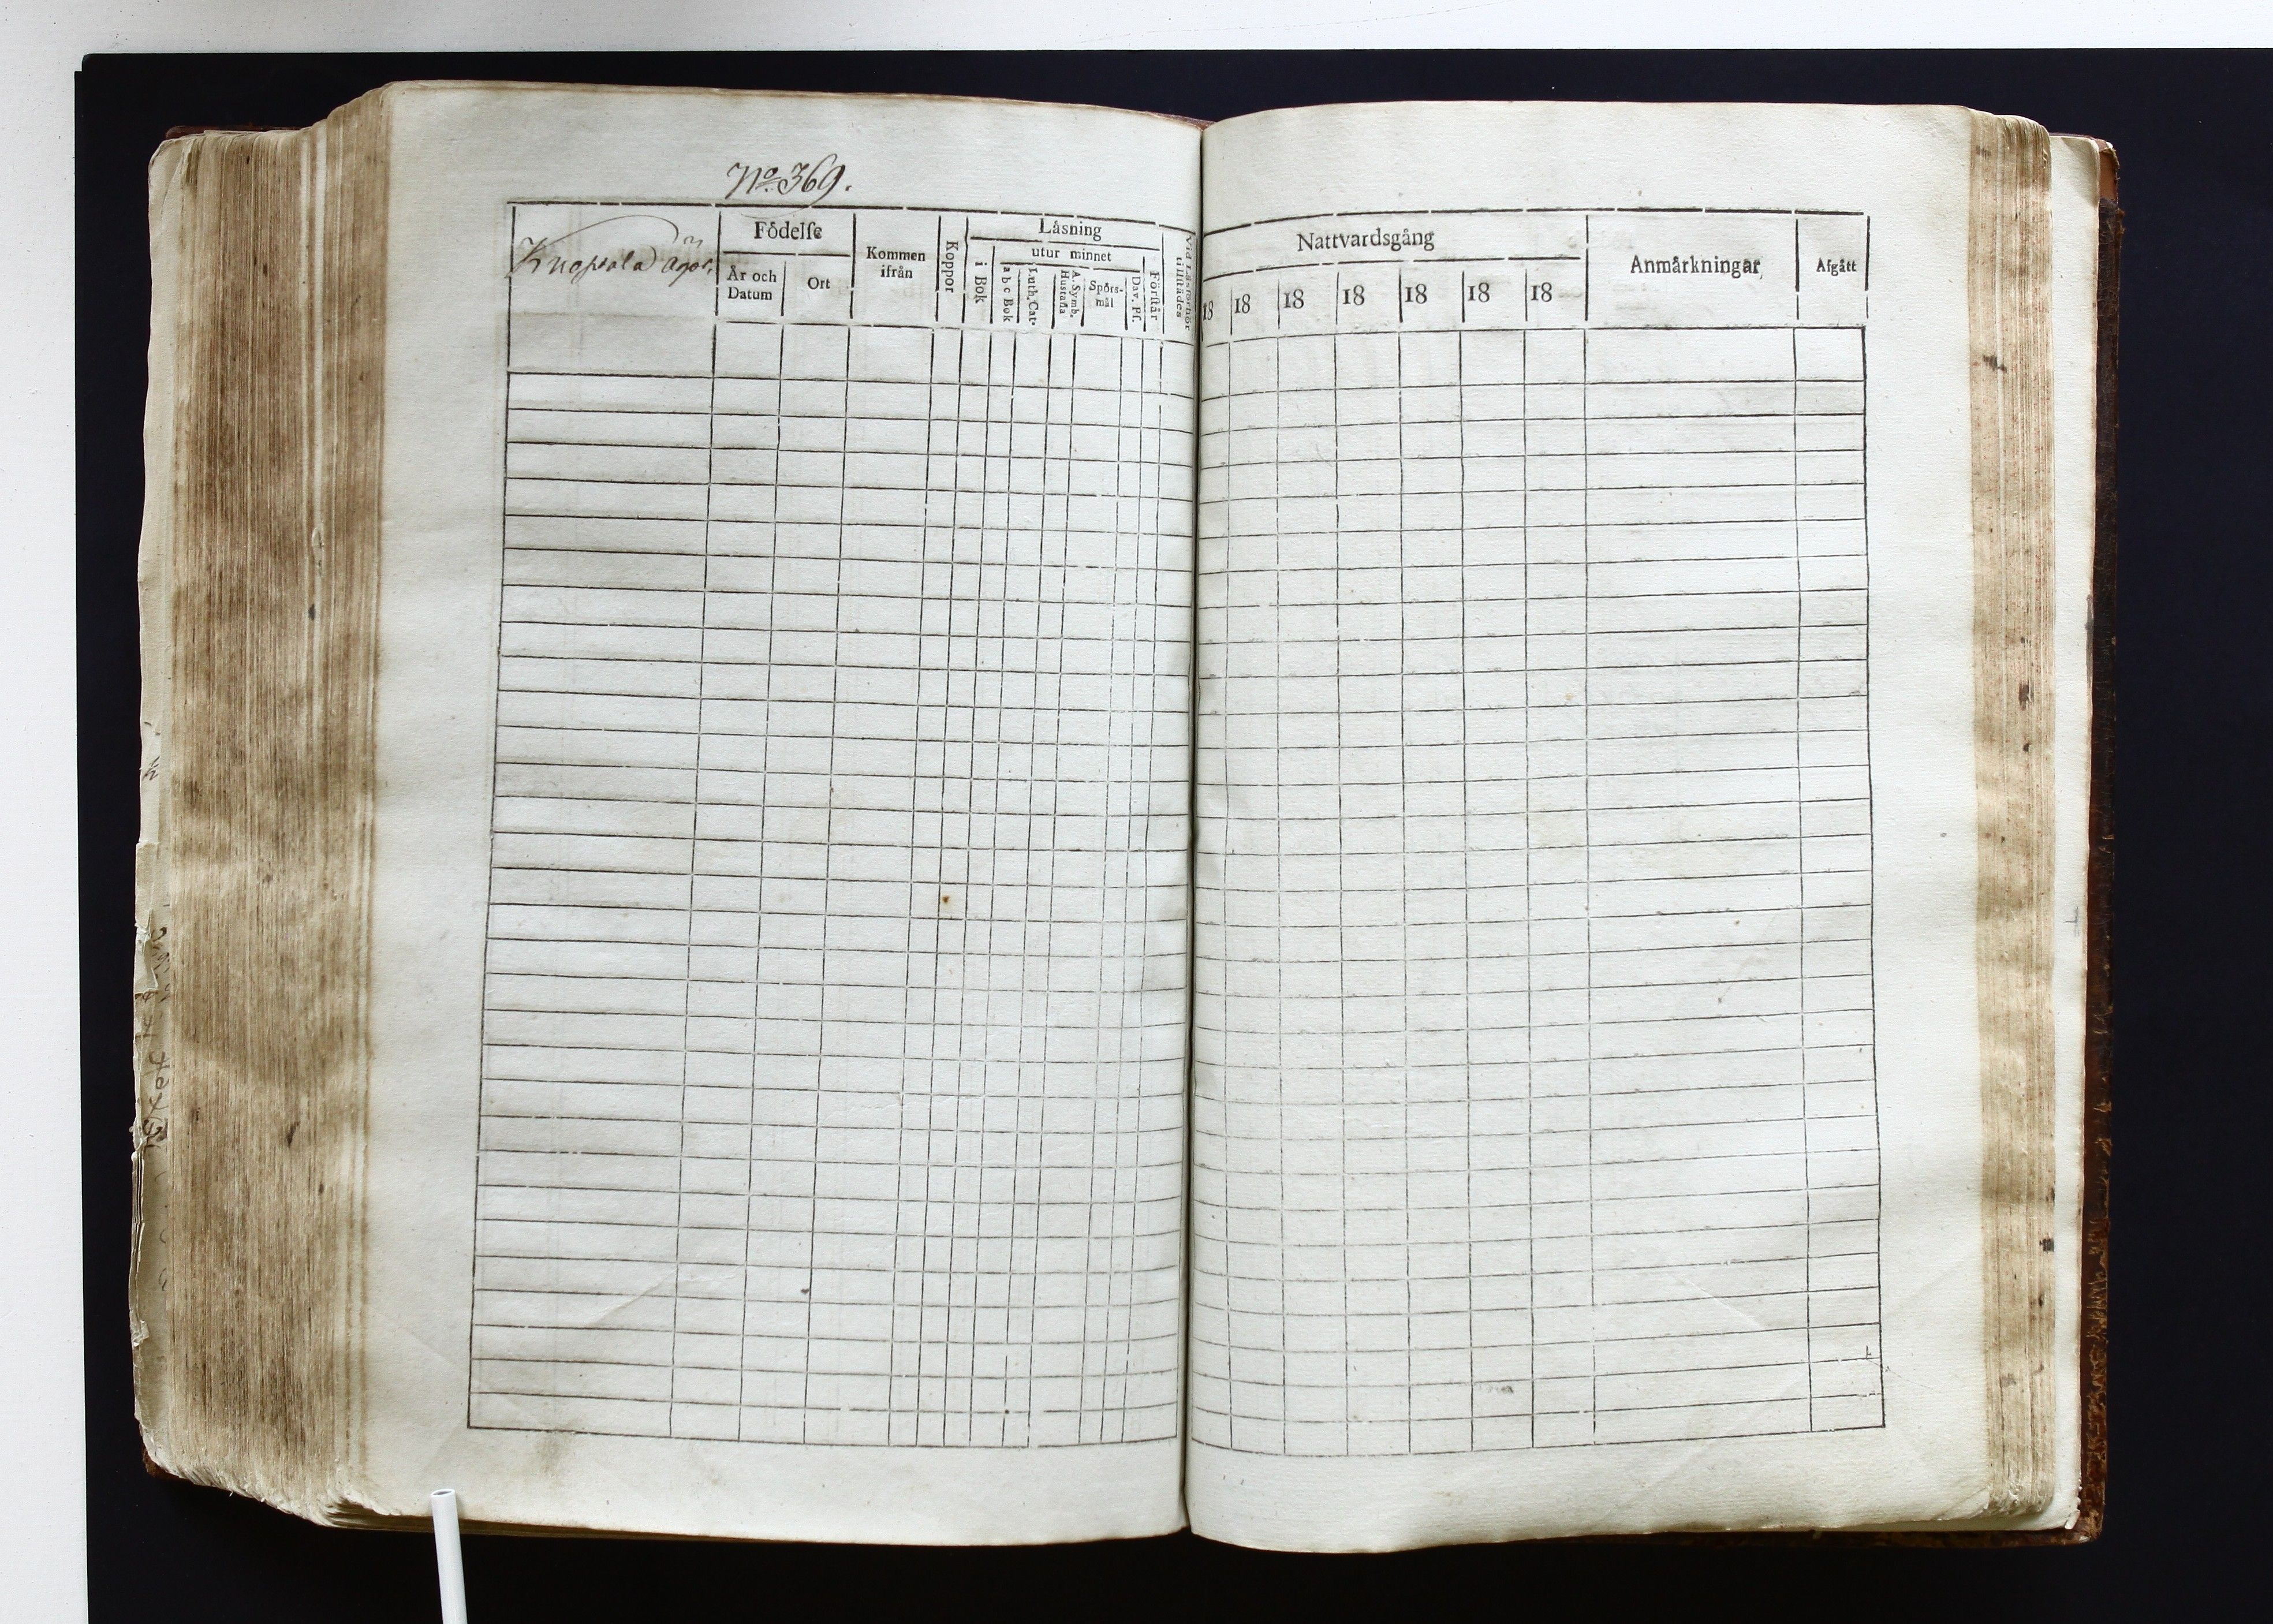 No 369.
Knopsala ägor.
Födelse
År och Datum
Ort
Kommen ifrån
Koppor
Låsning
i Bok
utur minnet
a b c Bok
Luth. Cat.
A. Symb. Hustafla
Spörs-mål
Dav. Ps.
Förstår
Vid Läsförhör tillstädes
Nattvardsgång
18 18 18 18 18 18 18
Anmårkningar
Afgått